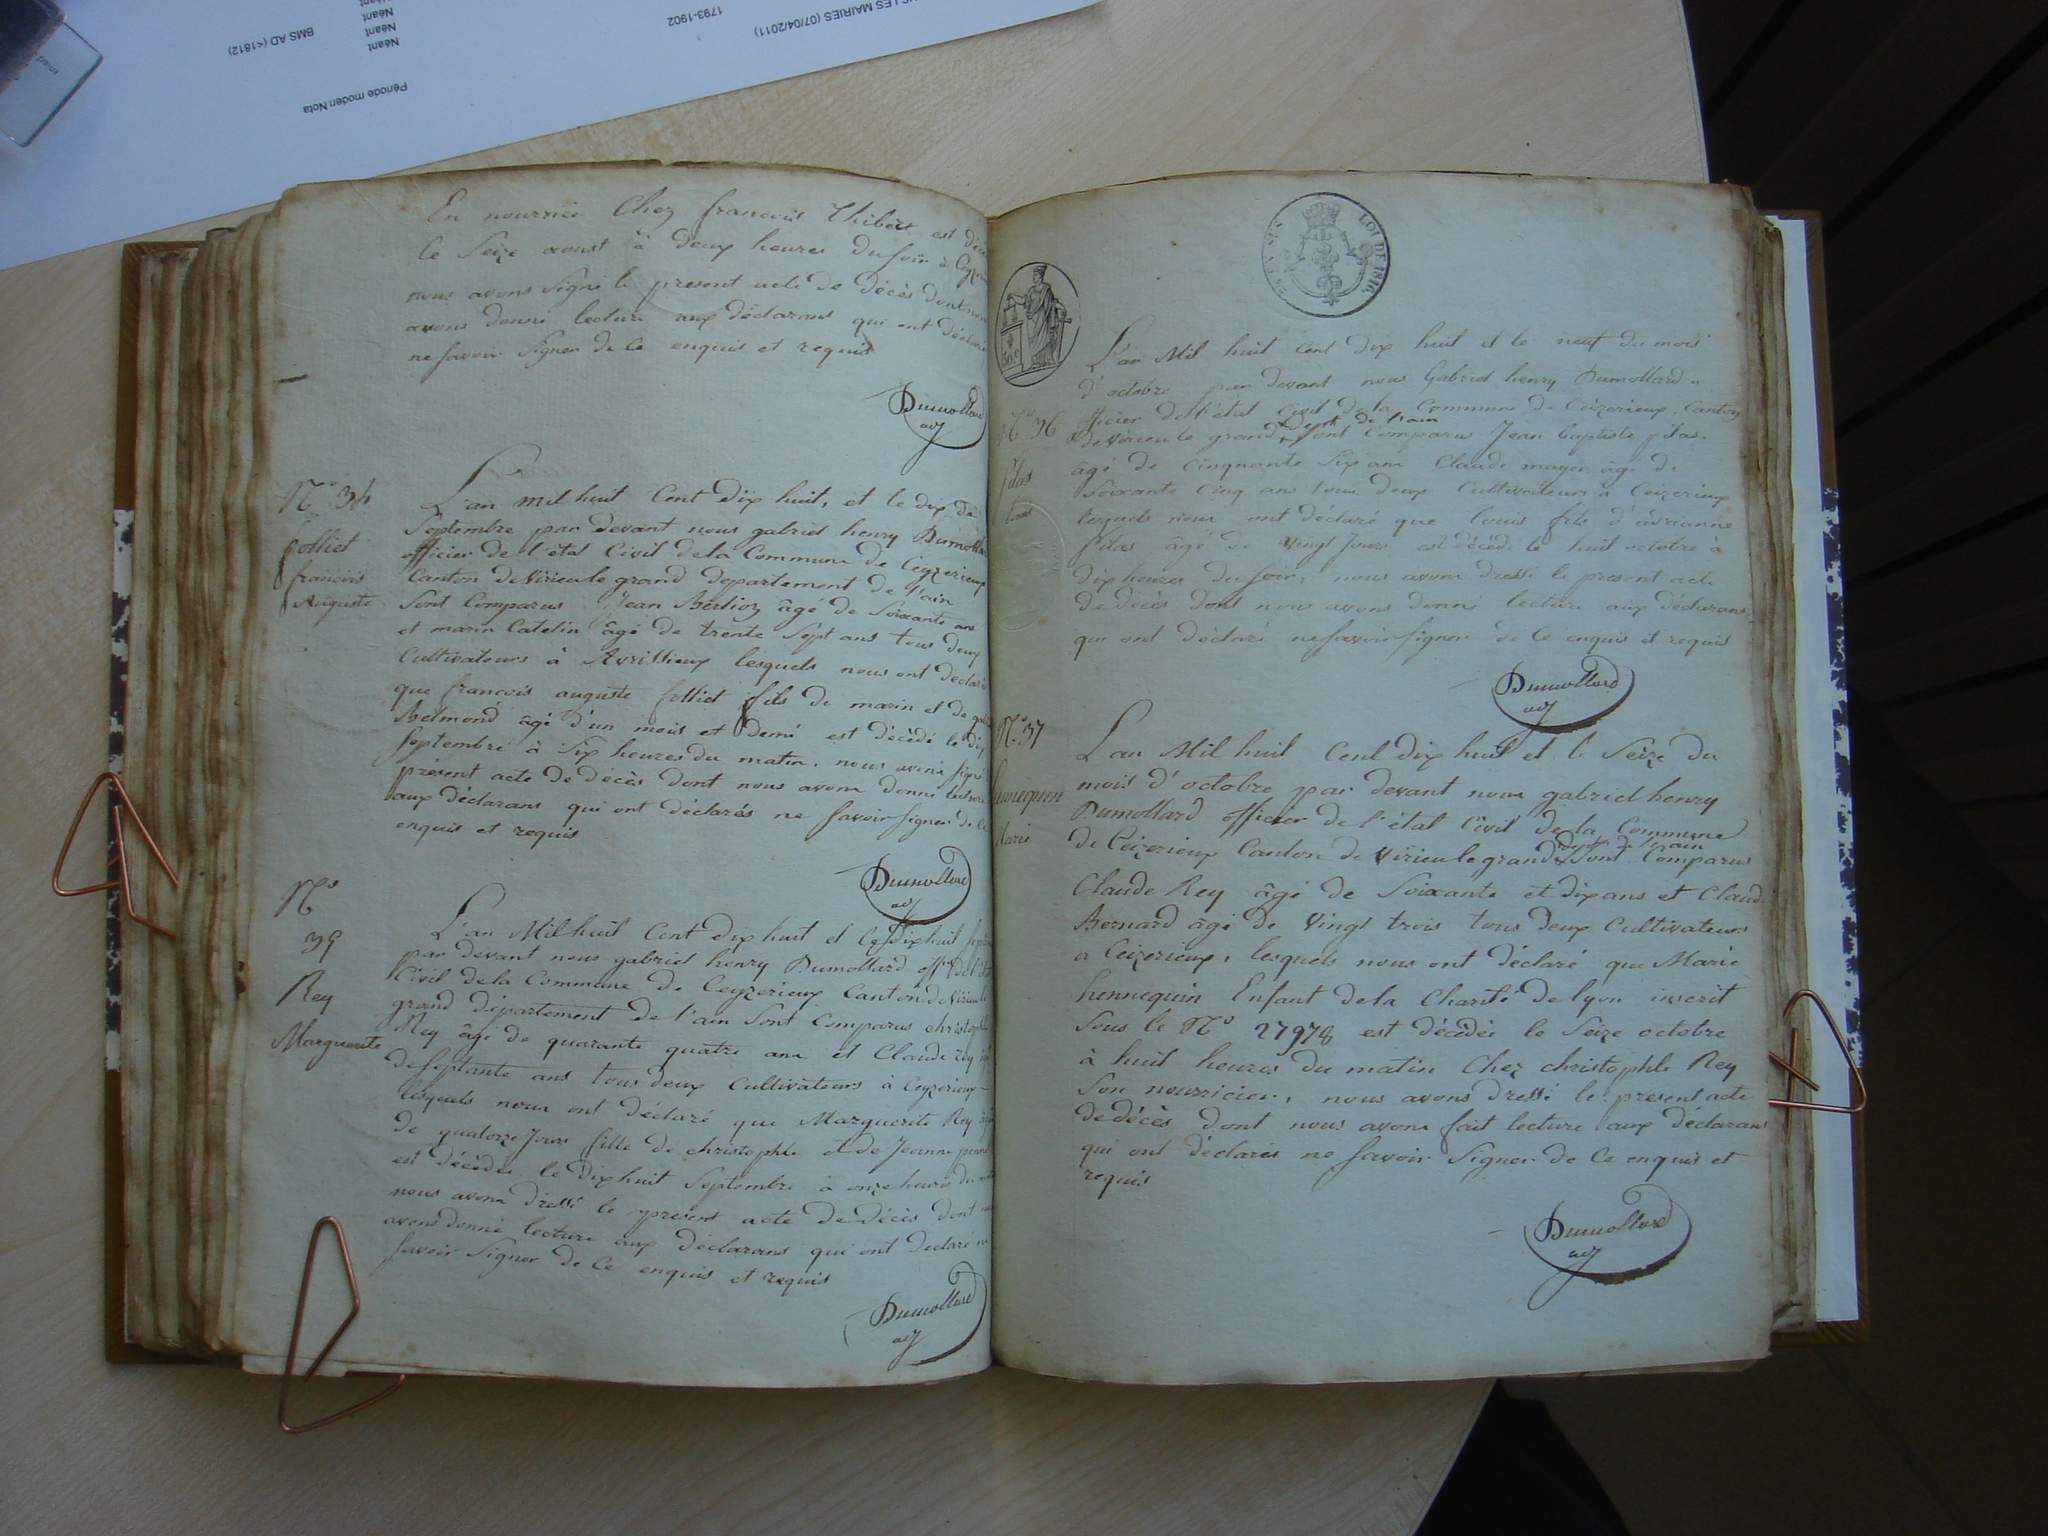 LES MAIRIES (07/04/2011)
1793-1902
BMS AD (<1812)
Néant
Néant
Néant
Période moden Nota
En nourrice Chez francois Thibert est
le Seize aoust à deux heures du soir à
nous avons Signé le present acte de décès dont nous
avons donné lecture aux déclarans qui ont déclaré
ne savoir Signer de Ce enquis et requis
Dumollard
adj
N.° 34
folliet
francois
Auguste
L'an mil huit Cent dix huit, et le dix de
Septembre par devant nous gabriel henry Dumollard
officier de l'état Civil de la Commune de Ceyzerieux
Canton de Virieu le grand departement de l'ain
Sont Comparus Jean Berlioz âgé de Soixante ans
et marin Catelin âgé de trente Sept ans tous deux
Cultivateurs à Avrissieux lesquels nous ont déclaré
que francois auguste folliet fils de marin et de
Belmond âgé d'un mois et demi est décédé le dix
Septembre à Six heures du matin, nous avons signé
présent acte de décès dont nous avons donné lecture
aux déclarans qui ont déclarés ne savoir signer de Ce
enquis et requis
Dumollard
adj
N.°
35
Rey
Marguerite
L'an Mil huit Cent dix huit et le dix huit
par devant nous gabriel henry Dumollard off.er de l'état
Civil de la Commune de Ceyzerieux Canton de Virieu le
grand département de l'ain Sont Comparus christophle
Rey âgé de quarante quatre ans et Claude rey
de septante ans tous deux Cultivateurs à Ceyzerieux
lesquels nous ont déclaré que Marguerite Rey
de quatorze Jours fille de christophle et de Jeanne
est décédée le dix huit Septembre à onze heures du
nous avons dressé le present acte de décès dont
avons donné lecture aux déclarans qui ont declaré ne
savoir Signer de Ce enquis et requis
Dumollard
adj
LOI DE 1816.
N.° 36
filas
louis
L'an Mil huit Cent dix huit et le neuf du mois
d'octobre par devant nous Gabriel henry Dumollard
officier de l'état Civil de la Commune de Ceizerieux, Canton
de Virieu le grand dept. de l'ain Sont Comparus Jean baptiste filas
âgé de Cinquante Six ans Claude moyer âgé de
Soixante Cinq ans tous deux Cultivateurs à Ceizerieux
lesquels nous ont déclaré que louis fils d'adrianne
filas âgé de Vingt Jours est décédé le huit octobre à
dix heures du soir, nous avons dressé le present acte
de décès dont nous avons donné lecture aux déclarans
qui ont déclaré ne savoir signer de Ce enquis et requis
Dumollard
adj
N.° 37
hennequin
Marie
L'an Mil huit Cent dix huit et le Seize du
mois d'octobre par devant nous gabriel henry
Dumollard officier de l'état Civil de la Commune
de Ceizerieux Canton de Virieu le grand dept. de l'ain Sont Comparus
Claude Rey âgé de Soixante et dix ans et Claude
Bernard âgé de Vingt trois tous deux Cultivateurs
a Ceizerieux, lesquels nous ont déclaré que Marie
hennequin Enfant de la Charité de lyon inscrit
Sous le N.° 27978 est décédée le Seize octobre
à huit heures du matin Chez christophle Rey
Son nourricier, nous avons dressé le present acte
de décès dont nous avons fait lecture aux déclarans
qui ont déclarés ne savoir Signer de Ce enquis et
requis
Dumollard
adj